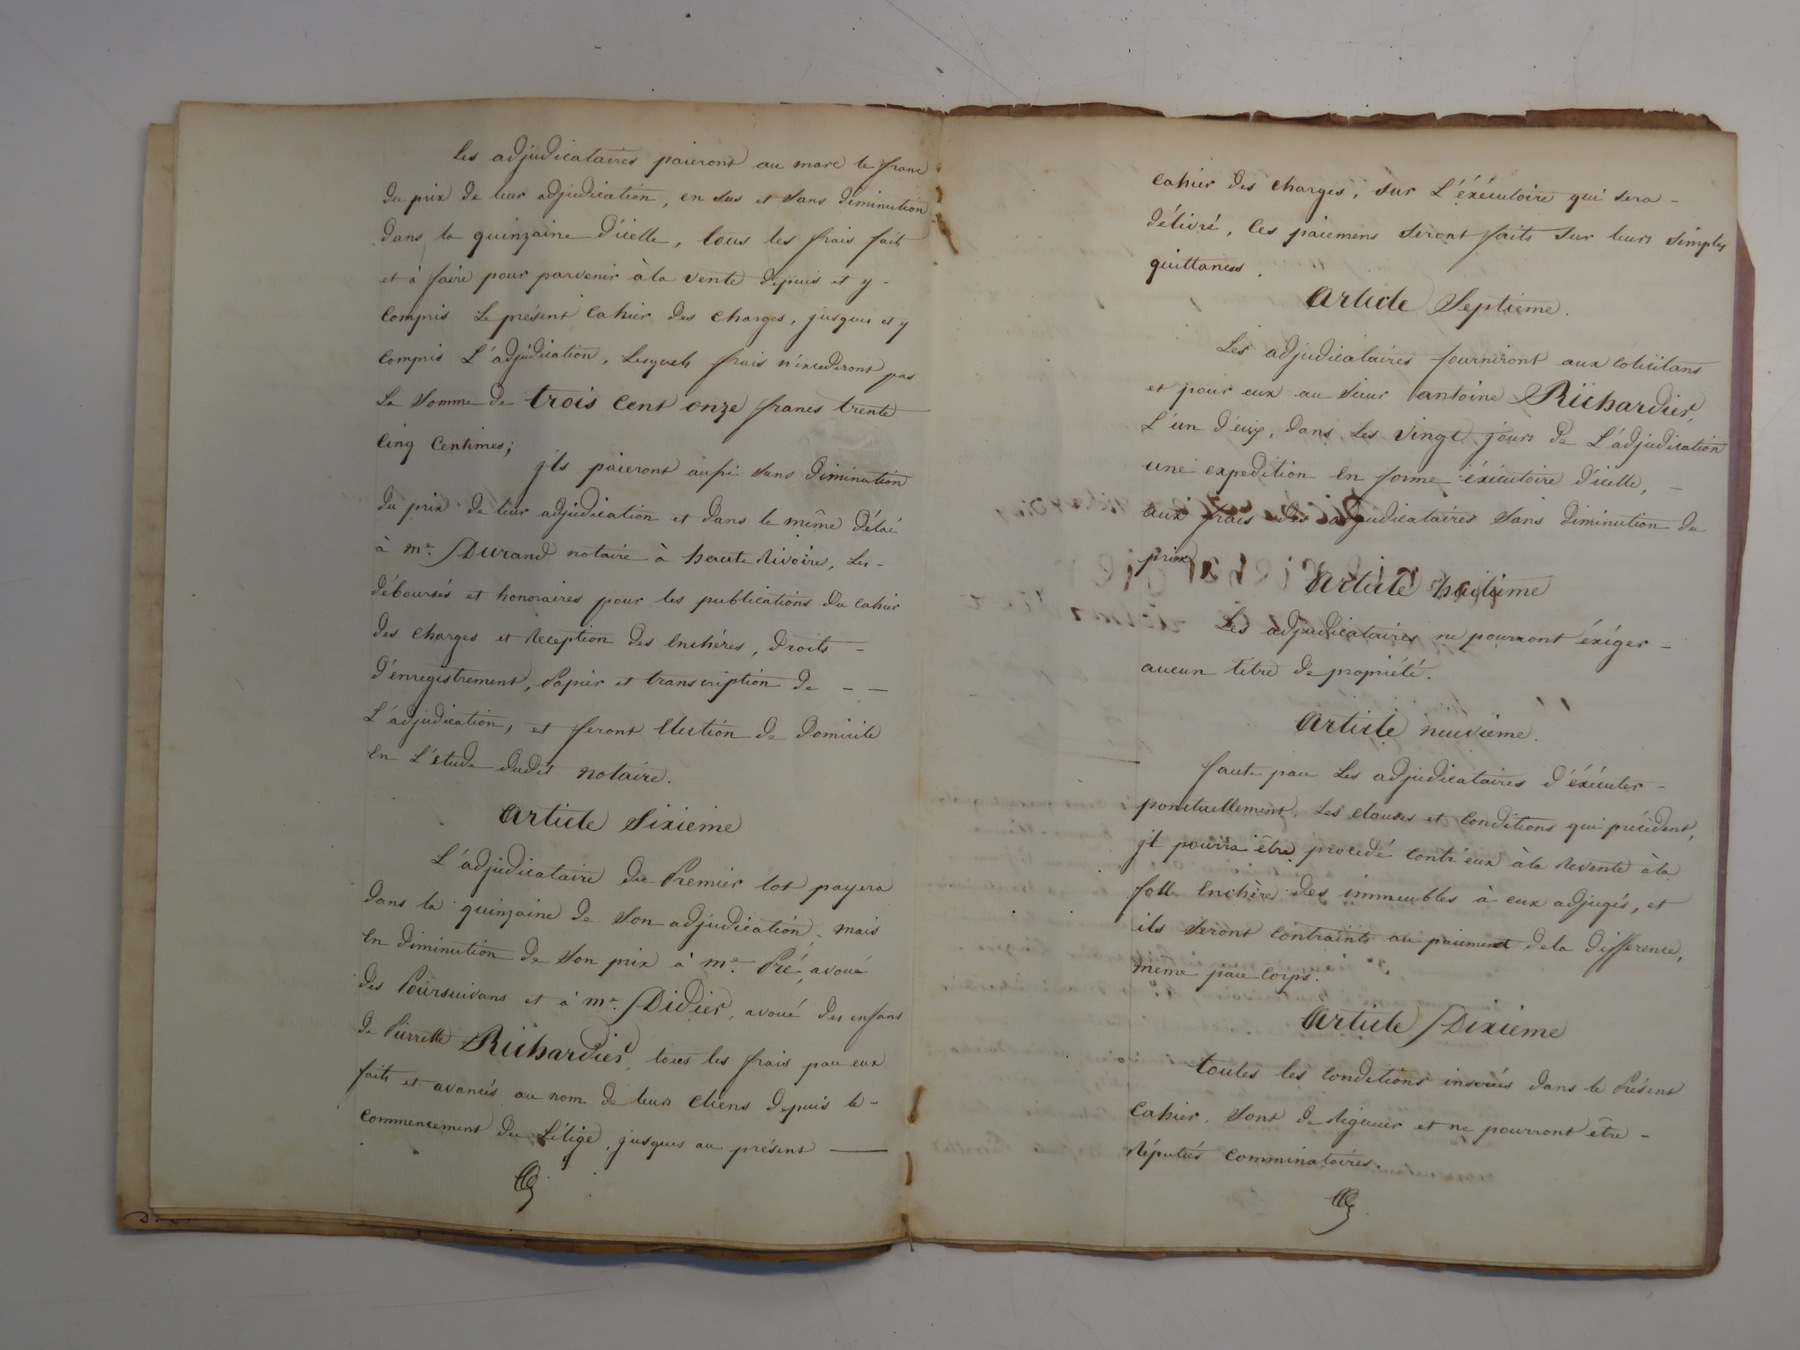 les adjudicataires paieront au marc le franc
du prix de leur adjudication, en sus et sans diminution
dans la quinzaine d'icelle, tous les frais faits
et à faire pour parvenir à la vente depuis et y -
compris le présent Cahier des charges, jusques et y
compris L'adjudication, Lesquels frais n'excederont pas
La somme de trois cent onze francs trente
cinq Centimes;
jls paieront aussi sans diminution
du prix de leur adjudication et dans le même délai
à me. Durand notaire à haute Rivoire, Les -
déboursés et honoraires pour les publications du cahier
des charges et Réception des Enchères, droits -
d'enregistrement, Papier et transcription de - -
L'adjudication, et feront Election de domicile
En L'étude dudit notaire.
Article Sixieme
L'adjudicataire du Premier lot payera
dans la quinzaine de son adjudication, mais
En diminution de son prix à me. Pré, avoué
des Poursuivans et à me. Didier, avoué des enfans
de Pierrette Richardier, tous les frais par eux
faits et avancés au nom de leurs cliens depuis le -
commencement du Litige, jusques au présent
cahier des charges, sur L'éxécutoire qui sera -
délivré, les paiemens seront faits sur leurs simples
quittances.
Article Septieme.
Les adjudicataires fourniront aux colicitans
et pour eux au Sieur antoine Richardier,
L'un d'eux, dans les vingt jours de L'adjudication
une expedition En forme éxécutoire d'icelle, -
aux frais des adjudicataires sans diminution du
prix
Article huitieme
Les adjudicataires ne pourront éxiger -
aucun titre de propriété.
Article neuvieme.
faute par Les adjudicataires d'éxécuter -
ponctuellement, Les clauses et Conditions qui précédent,
jl pourra être procédé contr'eux à la Revente à la
folle Enchère des immeubles à eux adjugés, et
ils seront contraints au paiement de la difference,
même par corps.
Article Dixieme
toutes les conditions inserées dans le Présent
Cahier, sont de Rigueur et ne pourront être -
Réputées comminatoires.